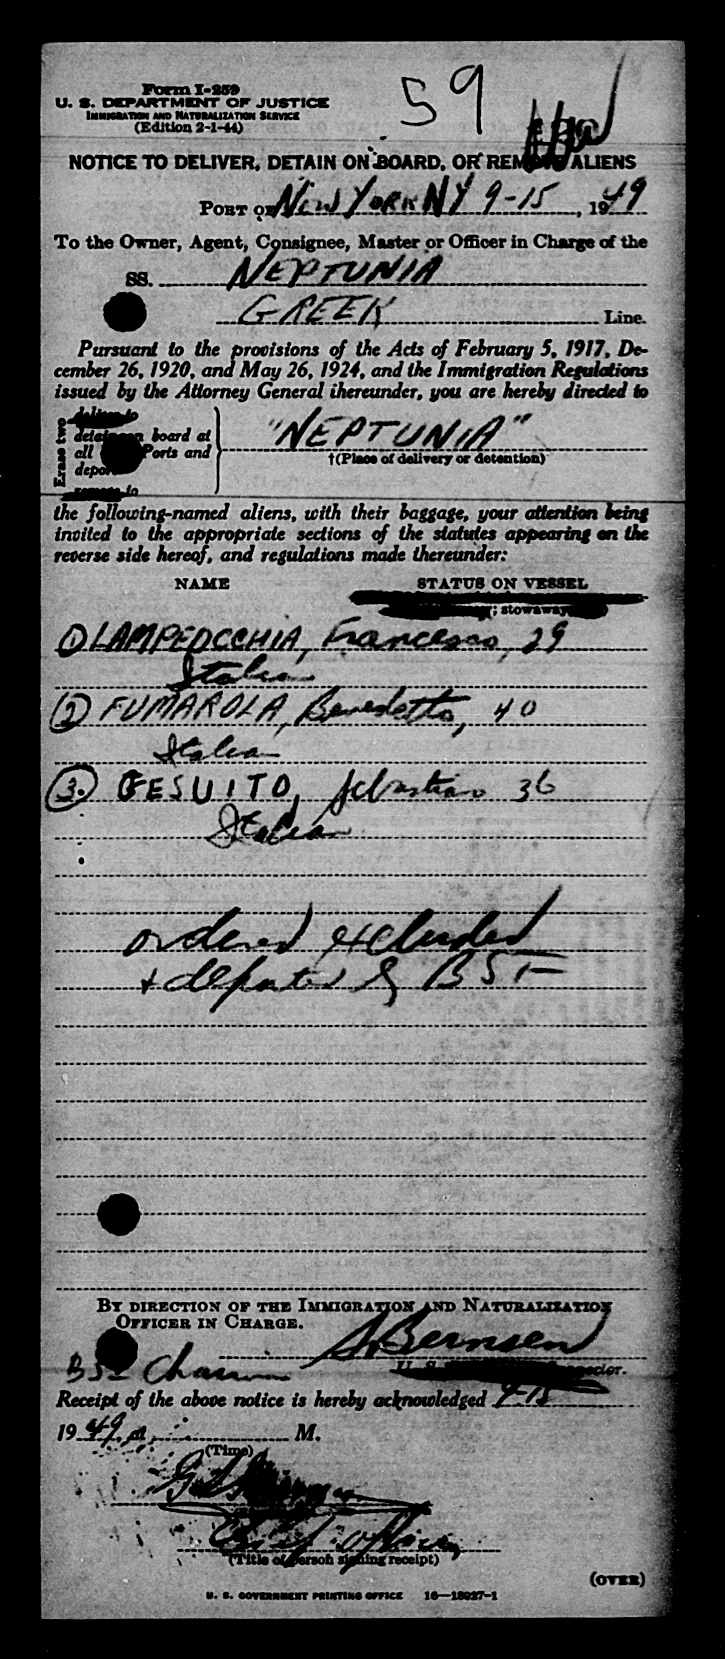 59
Form I-259
U. S. DEPARTMENT OF JUSTICE
IMMIGRATION AND NATURALIZATION SERVICE
(Edition 2-1-44)
NOTICE TO DELIVER, DETAIN ON BOARD, OR REMOVE ALIENS
PORT OF NEW YORK NY 9-15, 1949
To the Owner, Agent, Consignee, Master or Officer in Charge of the
SS. NEPTUNIA
GREEK Line.
Pursuant to the provisions of the Acts of February 5, 1917, De-
cember 26, 1920, and May 26, 1924, and the Immigration Regulations
issued by the Attorney General thereunder, you are hereby directed to
Erase two
deliver to
detain on board at
all Ports and
deport
remove to
"NEPTUNIA"
†(Place of delivery or detention)
the following-named aliens, with their baggage, your attention being
invited to the appropriate sections of the statutes appearing on the
reverse side hereof, and regulations made thereunder:
NAME STATUS ON VESSEL
; stowaway
1 LAMPEDCCHIA, Francesco, 29
Italian
2 FUMAROLA, Benedetto, 40
Italian
3. GESUITO, Sebastiano 36
Italian
ordered excluded
+ deported by BSI
BY DIRECTION OF THE IMMIGRATION AND NATURALIZATION
OFFICER IN CHARGE.
S. Bernsen
BSI Chairman
Receipt of the above notice is hereby acknowledged 9-15
1949, at M.
(Time)
Chief Officer
(Title of person signing receipt)
(OVER)
U. S. GOVERNMENT PRINTING OFFICE 16—18027-1